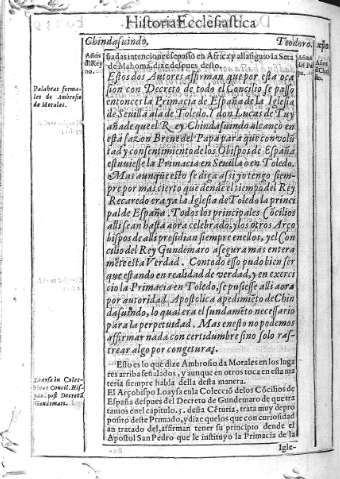 Historia Ecclesiastica
Chindasuindo, Teodoro.
Años del Rey no.
Palabras formales de Ambrosio de Morales.
sadas intenciones se passo en Africa y alla siguio la Seta
de Mahoma, dize despues desto.
Estos dos Autores affirman que por esta oca
sion con Decreto de todo el Concilio se passo
entonces la Primacia de España de la Iglesia
de Seuilla a la de Toledo. Y don Lucas de Tuy
añade que el Rey Chindasuindo alcançò en
esta sazon Breue del Papa para que con volũ
tad y consentimiento de los Obispos de España
estuuiesse la Primacia en Seuilla ò en Toledo.
Mas aunque esto se diga assi yo tengo siem
pre por mas cierto que dende el tiempo del Rey
Recaredo era ya la Iglesia de Toledo la princi
pal de España. Todos los principales Cõcilios
alli se an hasta aora celebrado, y los otros Arço
bispos de alli presidian siempre en ellos, y el Con
cilio del Rey Gundemaro asegura mas entera
mẽte esta Verdad. Con todo esso pudo bien ser
que estando en realidad de verdad, y en exerci
cio la Primacia en Toledo, se pusiesse alli aora
por autoridad Apostolica a pedimiẽto de Chin
dasuindo, lo qual era el fundamẽto necessario
para la perpetuidad. Mas en esto no podemos
affirmar nada con certidumbre sino solo ras-
trear algo por congeturas.
Esto es lo que dize Ambrosio da Morales en los luga
res arriba señalados, y aunque en otros toca en esta ma
teria siempre habla della desta manera.
El Arçobispo Loaysa en la Colecció delos Cõcilios de
España despues del Decreto de Gundemaro de que tra
tamos en el capitulo, 5. desta Cẽturia, trata muy depro
posito deste Primado, y dize que los que con curiosidad
an tratado del, affirman tener su principio dende el
Apostol San Pedro que le instituyo la Primacia de la
Loaysa in Colectione Concil. Hispan. post Decretũ Gundemari.
Igle-